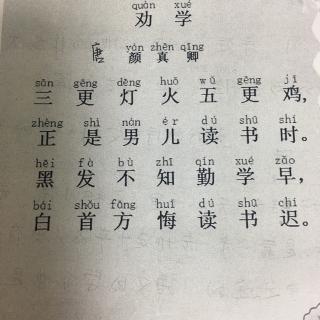 quàn xué
劝学
唐 yán zhēn qīng
颜真卿
sān gēng dēng huǒ wǔ gēng jī
三更灯火五更鸡，
zhèng shì nán ér dú shū shí
正是男儿读书时。
hēi fà bù zhī qín xué zǎo
黑发不知勤学早，
bái shǒu fāng huǐ dú shū chí
白首方悔读书迟。